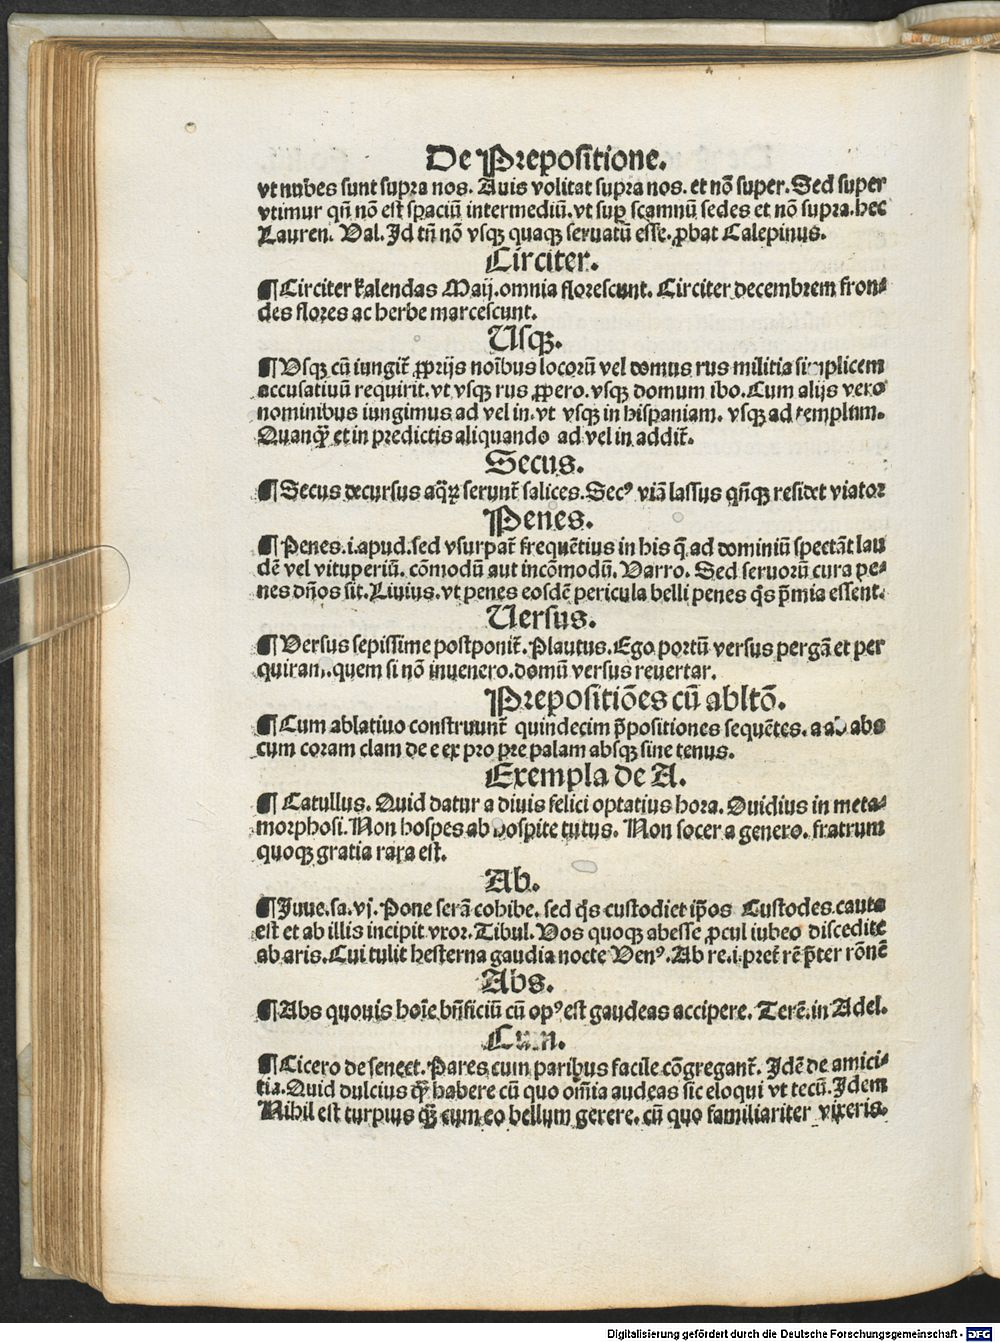 De Prepositione.
vt nubes sunt supra nos. Auis volitat supra nos. et nõ super. Sed super
vtimur qñ nõ est spaciũ intermediũ. vt sup scamnũ sedes et nõ supra. hec
Lauren. Val. Id tñ nõ vsq̃ quaq̃ seruatũ esse. ꝓbat Calepinus.
Circiter.
¶ Circiter kalendas Maij. omnia florescunt. Circiter decembrem fron⸗
des flores ac herbe marcescunt.
Usqꝫ.
¶ Vsqꝫ cũ iungit̃ ꝓprijs noĩbus locorũ vel domus rus militia simplicem
accusatiuũ requirit. vt vsqꝫ rus ꝓpero. vsqꝫ domum ibo. Cum alijs vero
nominibus iungimus ad vel in. vt vsqꝫ in hispaniam. vsqꝫ ad templum.
Quanq̃ et in predictis aliquando ad vel in addit̃.
Secus.
¶ Secus decursus aqꝝ serunt̃ salices. Secꝰ viã lassus qñqꝫ residet viator
Penes.
¶ Penes. i. apud. sed vsurpat̃ frequẽtius in his q̃ ad dominiũ spectãt lau
dẽ vel vituperiũ. cõmodũ aut incõmodũ. Varro. Sed seruorũ cura pe⸗
nes dños sit. Liuius. vt penes eosdẽ pericula belli penes q̃s p̃mia essent.
Uersus.
¶ Versus sepissime postponit̃. Plautus. Ego portũ versus pergã et per
quiram. quem si nõ inuenero. domũ versus reuertar.
Prepositiões cũ abltõ.
¶ Cum ablatiuo construunt̃ quindecim p̃positiones sequẽtes. a ab abs
cum coram clam de e ex pro pre palam absqꝫ sine tenus.
Exempla de A.
¶ Catullus. Quid datur a diuis felici optatius hora. Ouidius in meta⸗
morphosi. Non hospes ab hospite tutus. Non socer a genero. fratrum
quoqꝫ gratia rara est.
Ab.
¶ Iuue. sa. vj. Pone serã cohibe. sed q̃s custodiet ip̃os Custodes. cauta
est et ab illis incipit vxor. Tibul. Vos quoqꝫ abesse ꝓcul iubeo discedite
ab aris. Cui tulit hesterna gaudia nocte Venꝰ. Ab re. i. pret̃ rẽ p̃ter rõnẽ
Abs.
¶ Abs quouis hoĩe bñficiũ cũ opꝰ est gaudeas accipere. Terẽ. in Adel.
Cum.
¶ Cicero de senect. Pares cum paribus facile cõgregant̃. Idẽ de amici⸗
tia. Quid dulcius q̃ habere cũ quo oĩa audeas sic eloqui vt tecũ. Idem
Nihil est turpius q̃ cum eo bellum gerere. cũ quo familiariter vixeris.
Digitalisierung gefördert durch die Deutsche Forschungsgemeinschaft - DFG